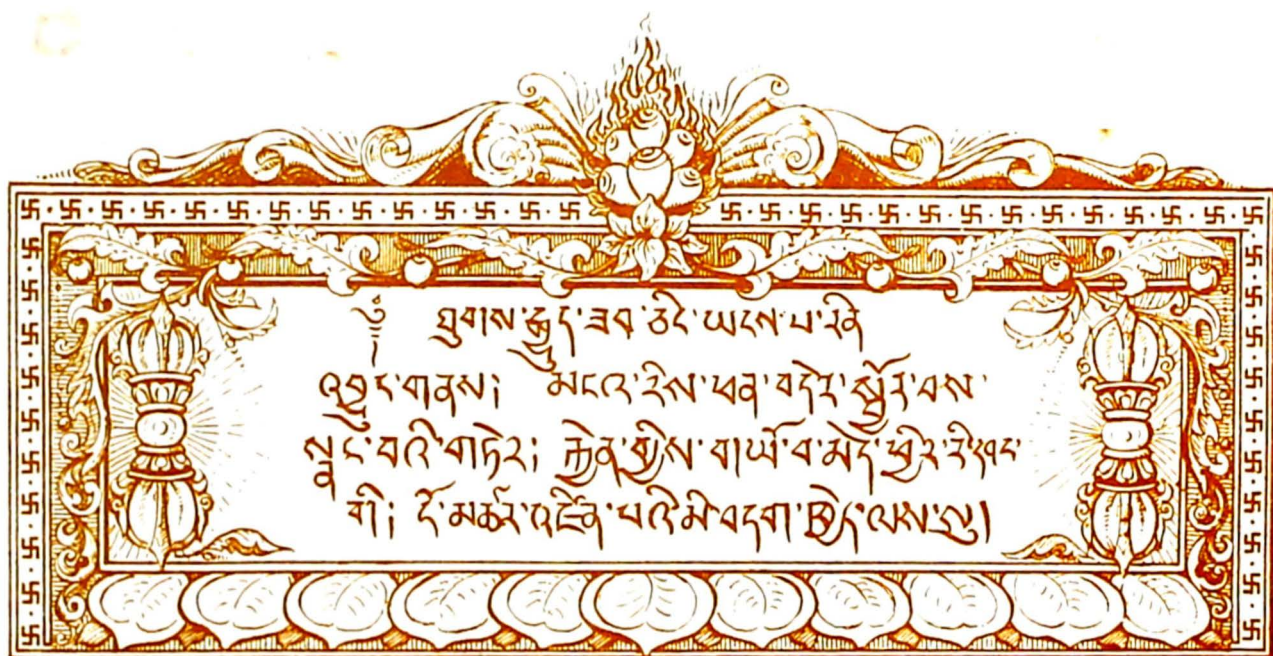 ༄༅ ཐུགས་རྒྱུད་ཟབ་ཅིང་ཡངས་པ་རིན
འབྱུང་གནས། མངའ་རིས་ཕན་བདེར་སྦྱོར་བས་
སྣང་བའི་གཏེར། རྐྱེན་གྱིས་གཡོ་བ་མེད་ཕྱིར་རི་དབང་
གི། ངོ་མཚར་འཛིན་པའི་མི་བདག་ཁྱེད་ལས་སུ།